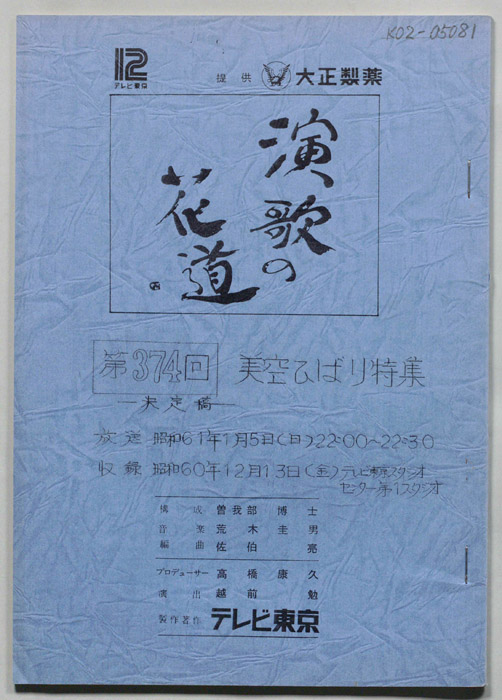 K02-05081
12
テレビ東京
提供 大正製薬
演歌の
花道
第374回 美空ひばり特集
―決定稿―
放送 昭和61年1月5日(日)22:00~22:30
収録 昭和60年12月13日(金)テレビ東京スタジオ
センター第1スタジオ
構成 曽我部博士
音楽 荒木圭男
編曲 佐伯亮
プロデューサー 高橋康久
演出 越前勉
製作著作 テレビ東京